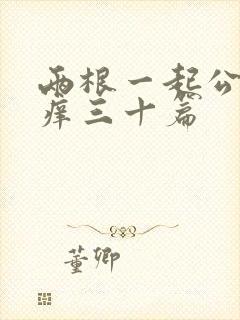 两根一起公
痒三十篇
董卿